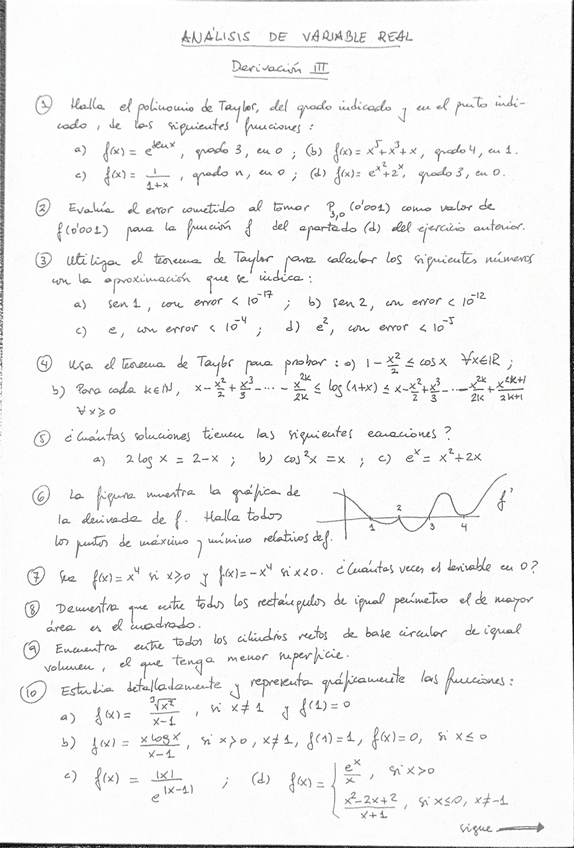 ANÁLISIS DE VARIABLE REAL
Derivación III
① Halla el polinomio de Taylor, del grado indicado y en el punto indi-
cado, de las siguientes funciones:
a) f(x) = e^{sen x}, grado 3, en 0 ; (b) f(x) = x^5+x^3+x, grado 4, en 1.
c) f(x) = 1/(1+x), grado n, en 0 ; (d) f(x) = e^{x^2}+2^x, grado 3, en 0.
② Evalúa el error cometido al tomar P_{3,0}(0'001) como valor de
f(0'001) para la función f del apartado (d) del ejercicio anterior.
③ Utiliza el teorema de Taylor para calcular los siguientes números
con la aproximación que se indica:
a) sen 1, con error < 10^{-17} ; b) sen 2, con error < 10^{-12}
c) e, con error < 10^{-4} ; d) e^2, con error < 10^{-5}
④ Usa el teorema de Taylor para probar: a) 1 - x^2/2 ≤ cos x ∀x∈ℝ ;
b) Para cada k∈ℕ, x - x^2/2 + x^3/3 - ... - x^{2k}/2k ≤ log(1+x) ≤ x - x^2/2 + x^3/3 - ... - x^{2k}/2k + x^{2k+1}/2k+1
∀x ≥ 0
⑤ ¿Cuántas soluciones tienen las siguientes ecuaciones?
a) 2 log x = 2-x ; b) cos^2 x = x ; c) e^x = x^2+2x
⑥ La figura muestra la gráfica de
la derivada de f. Halla todos
los puntos de máximo y mínimo relativos de f.
1 2 3 4 f'
⑦ Sea f(x) = x^4 si x≥0 y f(x) = -x^4 si x<0. ¿Cuántas veces es derivable en 0?
⑧ Demuestra que entre todos los rectángulos de igual perímetro el de mayor
área es el cuadrado.
⑨ Encuentra entre todos los cilindros rectos de base circular de igual
volumen, el que tenga menor superficie.
⑩ Estudia detalladamente y representa gráficamente las funciones:
a) f(x) = ∛(x^2)/(x-1), si x≠1 y f(1)=0
b) f(x) = x log x/(x-1), si x>0, x≠1, f(1)=1, f(x)=0, si x≤0
c) f(x) = |x|/e^{|x-1|} ; (d) f(x) = { e^x/x, si x>0
(x^2-2x+2)/(x+1), si x≤0, x≠-1
sigue →